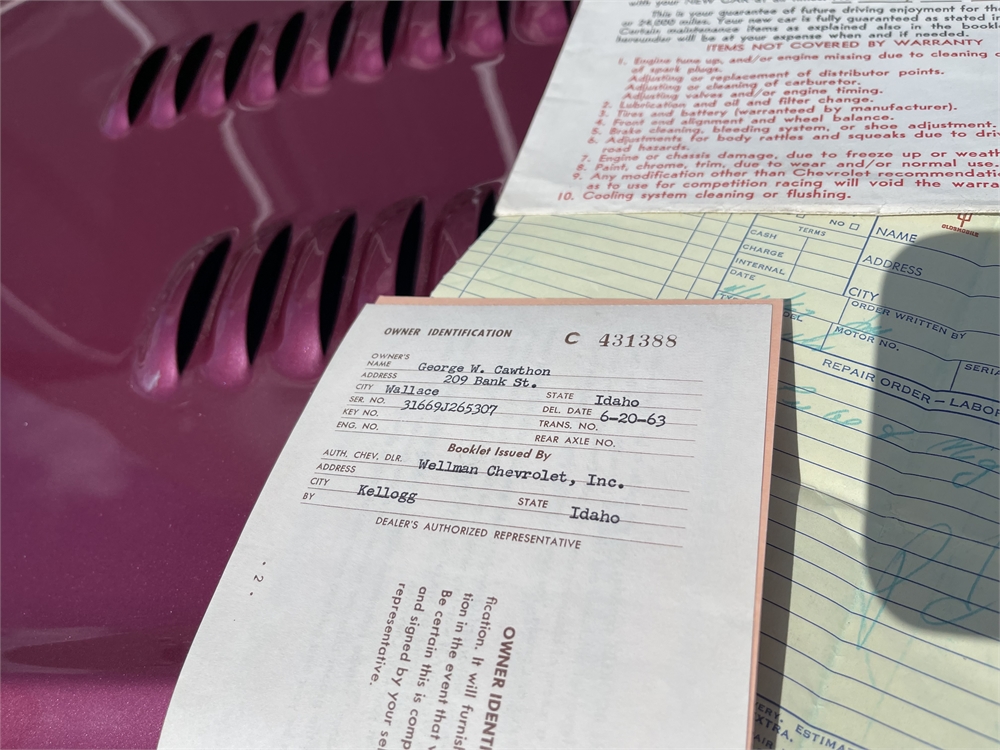 with your NEW CAR at all
This is your guarantee of future driving enjoyment for th
or 24,000 miles. Your new car is fully guaranteed as stated in
Certain maintenance items as explained also in the bookl
hereunder will be at your expense when and if needed.
ITEMS NOT COVERED BY WARRANTY
1. Engine tune up, and/or engine missing due to cleaning o
of spark plugs.
Adjusting or replacement of distributor points.
Adjusting or cleaning of carburetor.
Adjusting valves and/or engine timing.
2. Lubrication and oil and filter change.
3. Tires and battery (warranteed by manufacturer).
4. Front end alignment and wheel balance.
5. Brake cleaning, bleeding system, or shoe adjustment.
6. Adjustments for body rattles and squeaks due to driv
road hazards.
7. Engine or chassis damage, due to freeze up or weath
8. Paint, chrome, trim, due to wear and/or normal use.
9. Any modification other than Chevrolet recommendatio
as to use for competition racing will void the warra
10. Cooling system cleaning or flushing.
OLDSMOBILE
NO
TERMS
CASH
CHARGE
INTERNAL
DATE
NAME
ADDRESS
CITY
ORDER WRITTEN BY
MOTOR NO.
SERIA
REPAIR ORDER – LABOR
OWNER IDENTIFICATION C 431388
OWNER'S
NAME George W. Cawthon
ADDRESS 209 Bank St.
CITY Wallace STATE Idaho
SER. NO. 31669J265307 DEL. DATE 6-20-63
KEY NO. TRANS. NO.
ENG. NO. REAR AXLE NO.
Booklet Issued By
AUTH. CHEV. DLR. Wellman Chevrolet, Inc.
ADDRESS
CITY Kellogg STATE Idaho
BY
DEALER'S AUTHORIZED REPRESENTATIVE
- 2 -
OWNER IDENTI
fication. It will furnish
tion in the event that
Be certain this is comp
and signed by your se
representative.
ERY, ESTIMA
XTRA.